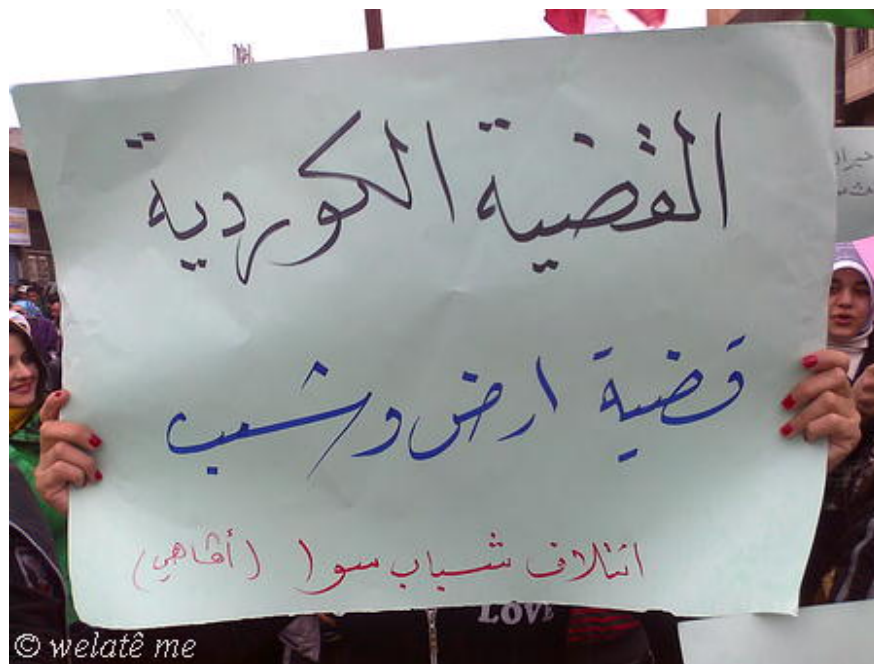 القضية الكوردية
قضية ارض وشعب
ائتلاف شباب سوا (أڤاهي)
LOVE
© welatê me